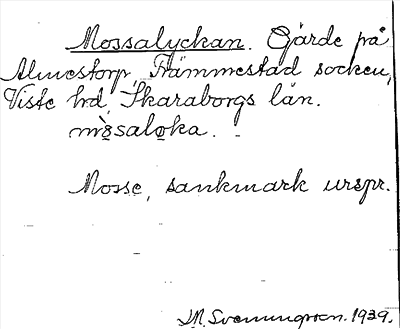 Mossalyckan. Gärde på
Almestorp, Främmestad socken,
Viste hrd, Skaraborgs län.
mo̊saloka.
Mosse, sankmark urspr.
Svenungsson. 1929.